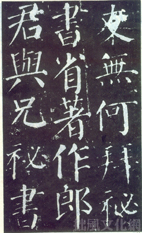 友無何拜秘
書省著作郎
君與兄秘書